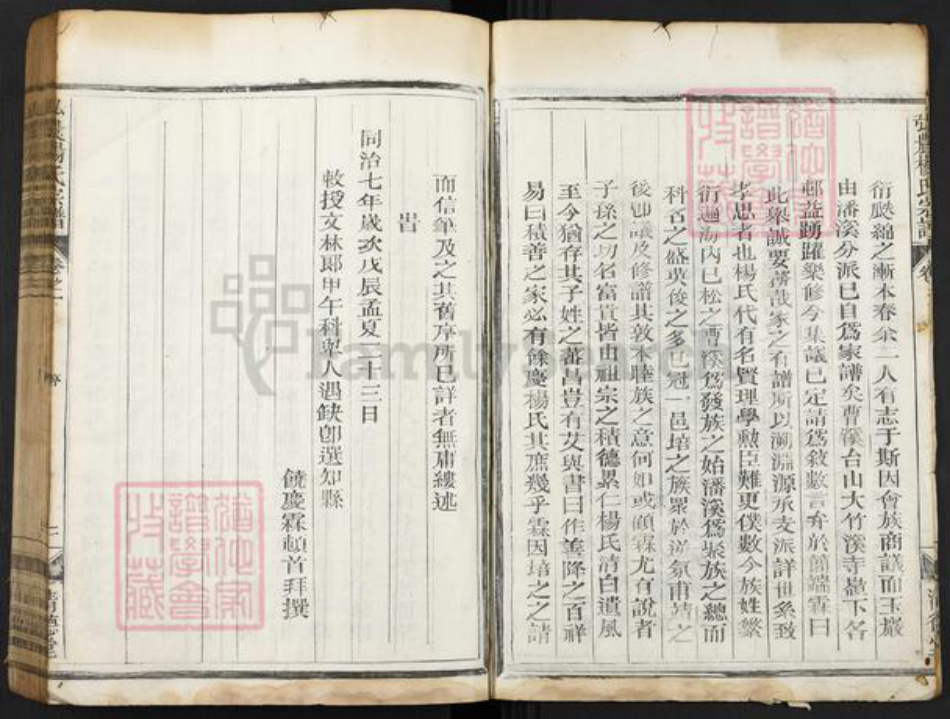 弘農楊氏宗譜
衍瓞綿之漸本春余二人有志于斯因會族商議而玉巖
由潘溪分派已自爲家譜矣曹溪台山大竹溪寺壟下各
邨益踴躍樂修今集議已定請爲敘數言弁於簡端霖曰
此舉誠要務哉家之有譜所以溯淵源承支派詳世系致
孝思者也楊氏代有名賢理學勲臣難更僕數今族姓繁
衍遍海內已松之曹溪爲發族之始潘溪爲聚族之總而
科名之盛英俊之多已冠一邑培之族衆於逆氛甫靖之
後卽議及修譜其敦本睦族之意何如或顧霖尤有說者
子孫之功名富貴皆由祖宗之積德累仁楊氏清白遺風
至今猶存其子姓之蕃昌豈有艾與書曰作善降之百祥
易曰積善之家必有餘慶楊氏其庶幾乎霖因培之之請
而信筆及之其舊序所已詳者無庸縷述
旹
同治七年歲次戊辰孟夏二十三日
敕授文林郎甲午科舉人遇缺卽選知縣
饒慶霖頓首拜撰
弘農楊氏宗譜
卷之一
序